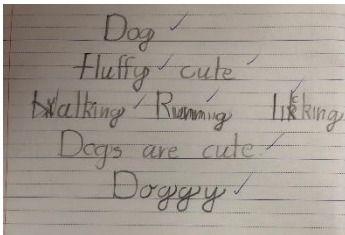 Dog
fluffy cute
Walking Running licking
Dogs are cute
Doggy